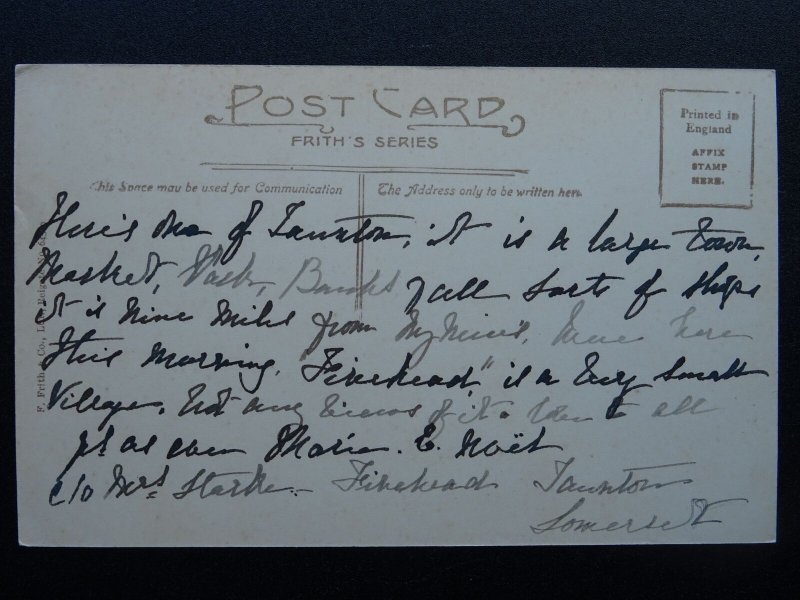 POST CARD
FRITH'S SERIES
Printed in
England
AFFIX
STAMP
HERE.
This Space may be used for Communication
The Address only to be written here.
of Taunton, it is a large town,
Market, Banks & all sorts of ships
it is nine miles from here
this morning, Fivehead," is a very small
Village, not any views of it all
Maria. E. Noët
c/o Mrs Starke. Fivehead Taunton
Somerset
F. Frith & Co., Ltd.